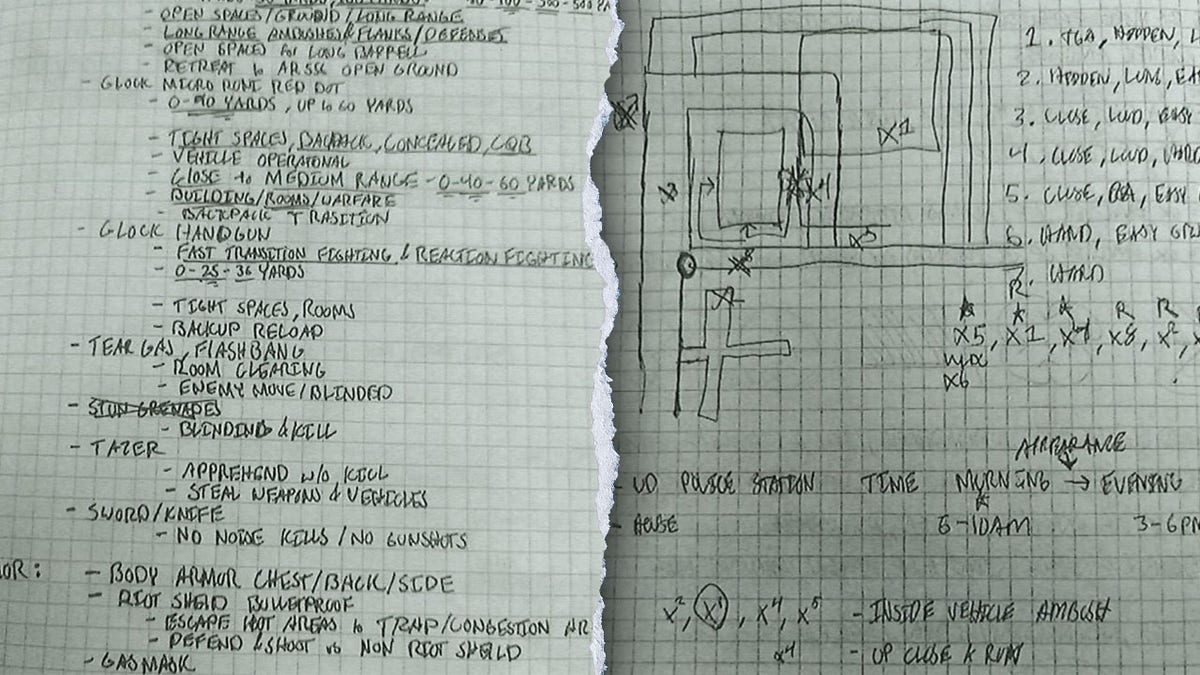 - OPEN SPACES/GROUND/LONG RANGE
- LONG RANGE AMBUSHES & FLANKS/DEFENSES
- OPEN SPACED for LONG BARRELL
- RETREAT to OPEN GROUND
- GLOCK MICRO RONI RED DOT
UP to 60 YARDS
- TIGHT SPACES, BACKPACK, CONCEALED, CQB
- VEHICLE OPERATIONAL
- CLOSE to MEDIUM RANGE - 0-40-60 YARDS
- BUILDING/ROOMS/WARFARE
- BACKPACK TRASITION
- GLOCK HANDGUN
- FAST TRANSITION FIGHTING & REACTION FIGHTING
- 0-25-36 YARDS
- TIGHT SPACES, ROOMS
- BACKUP RELOAD
- TEAR GAS, FLASHBANG
- ROOM CLEARING
- ENEMY MOVE/BLINDED
- STUN GRENADES
- BLINDIND & KILL
- TAZER
- APPREHEND w/o KILL
- STEAL WEAPONS & VEHICLES
- SWORD/KNIFE
- NO NOISE KILLS / NO GUNSHOTS
OR: - BODY ARMOR CHEST/BACK/SIDE
- RIOT SHIELD BULLETPROOF
- ESCAPE HOT AREAS to TRAP/CONGESTION AR
- DEFEND & SHOOT vs NON RIOT SHIELD
- GAS MASK
X1
X4
X3
X5
1. HIDDEN, L
2. HIDDEN, LONG, EA
3. CLOSE, LOUD, EASY
4. CLOSE, LOUD, HARD
5. CLOSE, EASY
6. HARD, EASY
7. HARD
R
R R
X5, X1, X4, X8, X2,
X6
APPEARANCE
- UD POLICE STATION TIME MORNING → EVENING
- HOUSE 6-10AM 3-6PM
X2, X1, X4, X5 - INSIDE VEHICLE AMBUSH
X4 - UP CLOSE & RUN